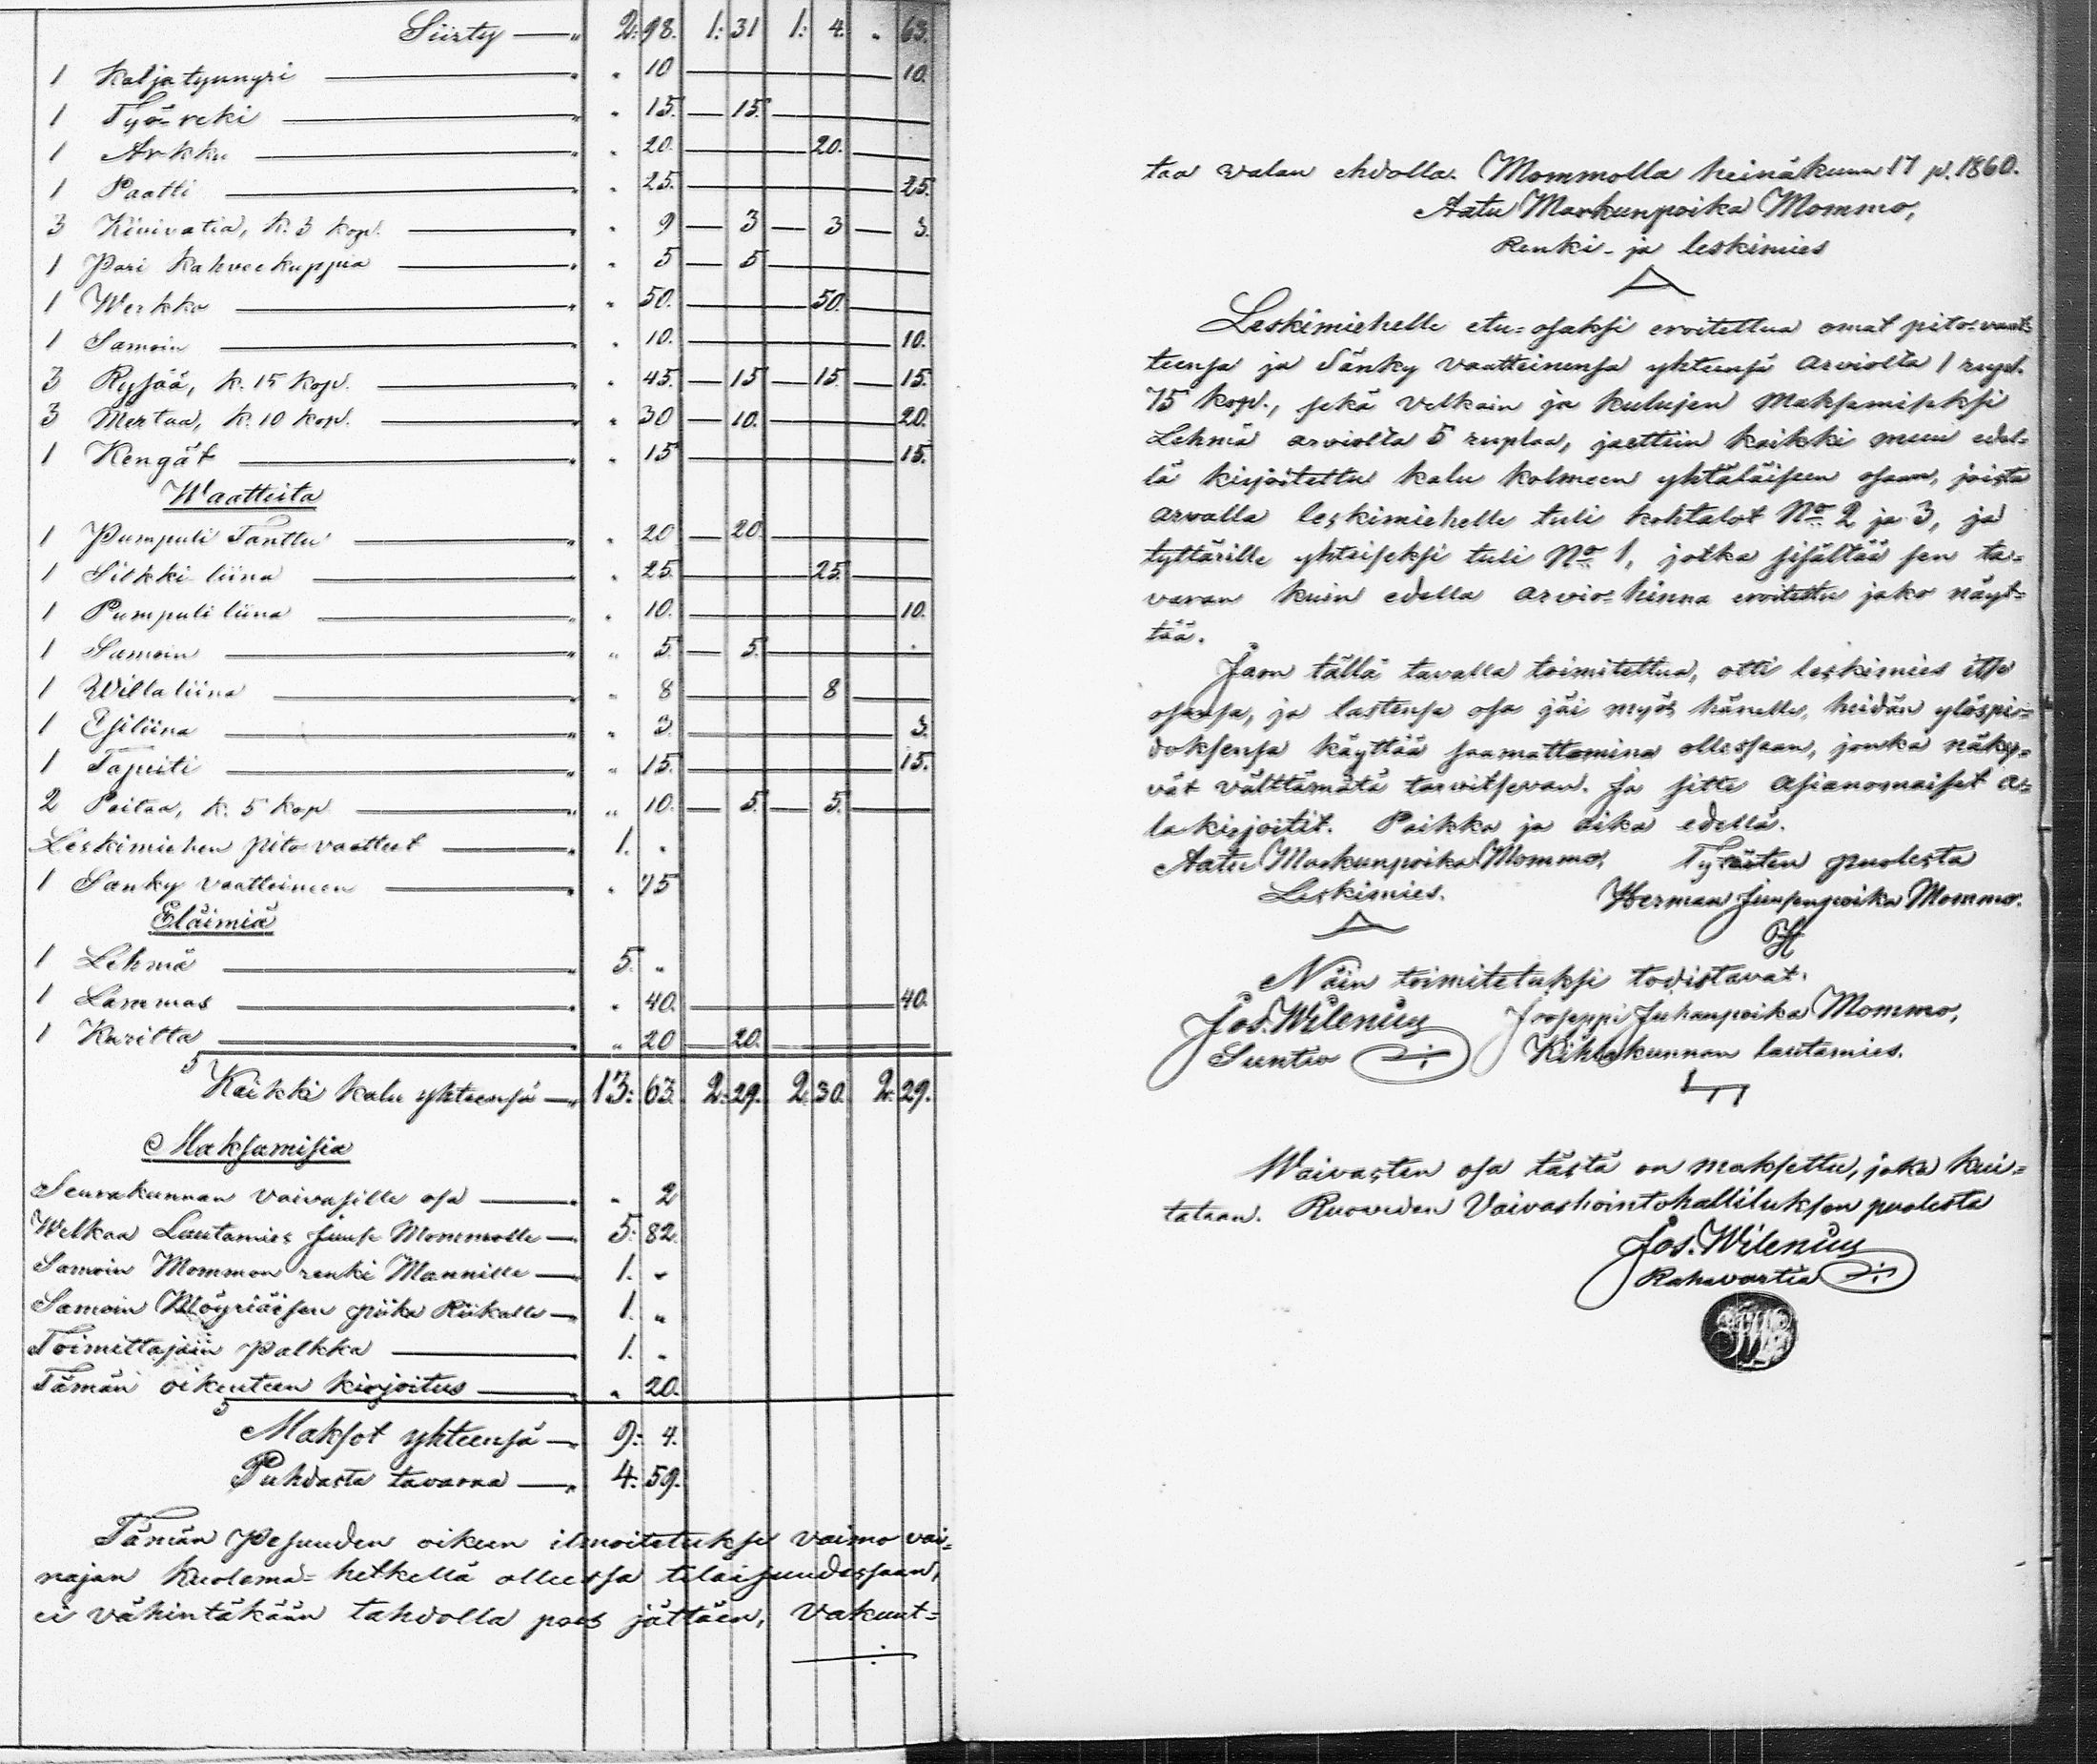 Siirty — „ 2: 98. 1: 31 1: 4. „ 63.
1 Kaljatynnyri — „ „ 10 — 10.
1 Työ-reki — „ „ 15. — 15. —
1 Arkku — „ „ 20. — 20. —
1 Paatti — „ „ 25. — 25.
3 Kiwivatia, k. 3 kop. — „ „ 9 — 3 — 3 — 3.
1 Pari Kahveekuppia — „ „ 5 — 5 —
1 Werkko — „ „ 50. — 50. —
1 Samoin — „ „ 10. — 10.
3 Rysää, k. 15 kop. — „ „ 45. — 15 — 15 — 15.
3 Mertaa, k. 10 kop. — „ „ 30 — 10. — 20.
1 Kengät — „ „ 15 — 15.
Waatteita
1 Pumpuli Tanttu — „ „ 20 — 20 —
1 Silkki liina — „ „ 25. — 25. —
1 Pumpuli liina — „ „ 10. — 10.
1 Samoin — „ „ 5. — 5. —
1 Willa liina — „ „ 8 — 8 —
1 Esiliina — „ „ 3. — 3.
1 Tapiiti — „ „ 15. — 15.
2 Paitaa, k. 5 kop. — „ „ 10. — 5. — 5. —
Leskimiehen pito vaatteet — „ 1. „
1 Sänky vaatteineen — „ „ 75
Eläimiä
1 Lehmä — „ 5. „
1 Lammas — „ „ 40. — 40.
1 Karitta — „ „ 20 — 20. —
Kaikki kalu yhteensä — „ 13: 63. 2: 29. 2: 30. 2: 29.
Maksamisia
Seurakunnan vaivasille osa — „ „ 2
Welkaa Lautamies Juuse Mommolle — 5: 82.
Samoin Mommon renki Mannille — 1. „
Samoin Möyriäisen piika Riikalle — 1. „
Toimittajain palkka — „ 1. „
Tämän oikeuteen kirjoitus — „ „ 20.
Maksot yhteensä — „ 9: 4.
Puhdasta tavaraa — „ 4: 59.
Tämän Pesuuden oikeen ilmoitetuksi vaimo vai=
najan Kuolema=hetkellä olleessa tilaisuudessaan,
ei vähintäkään tahdolla pois jättäen, vakuut=
taa valan ehdolla. Mommolla heinäkuun 17 p. 1860.
Aatu Markunpoika Mommo,
Renki- ja leskimies
Leskimiehelle etu=osaksi eroitettua omat pito=vaat=
teensa ja Sänky vaatteinensa yhteensä arviolta 1 rupl.
75 kop., sekä velkain ja kulujen maksamiseksi
Lehmä arviolta 5 ruplaa, jaettiin kaikki muu edel=
lä kirjoitettu kalu kolmeen yhtäläiseen osaan, joista
arvalla leskimiehelle tuli kohtalot No 2 ja 3, ja
tyttärille yhteiseksi tuli No 1, jotka sisältää sen ta=
varan kuin edellä arvio=hinna eroitettu jako näyt=
tää.
Jaon tällä tavalla toimitettua, otti leskimies itse
osansa, ja lastensa osa jäi myös hänelle, heidän ylöspi=
doksensa käyttää saamattomina ollessaan, jonka näky=
vät välttämätä tarvitsevan. Ja sitte asianomaiset a=
lakirjoitit. Paikka ja aika edellä.
Aatu Markunpoika Mommo, Tyttästen puolesta
Leskimies. Herman Juusenpoika Mommo.
Näin toimitetuksi todistavat.
Jos. Wilenius Jooseppi Juhanpoika Mommo,
Suntio Kihlakunnan lautamies.
Waivasten osa tästä on maksettu, joka kui=
tataan. Ruoveden Vaivashointohallituksen puolesta
Jos. Wilenius
Rahavartia